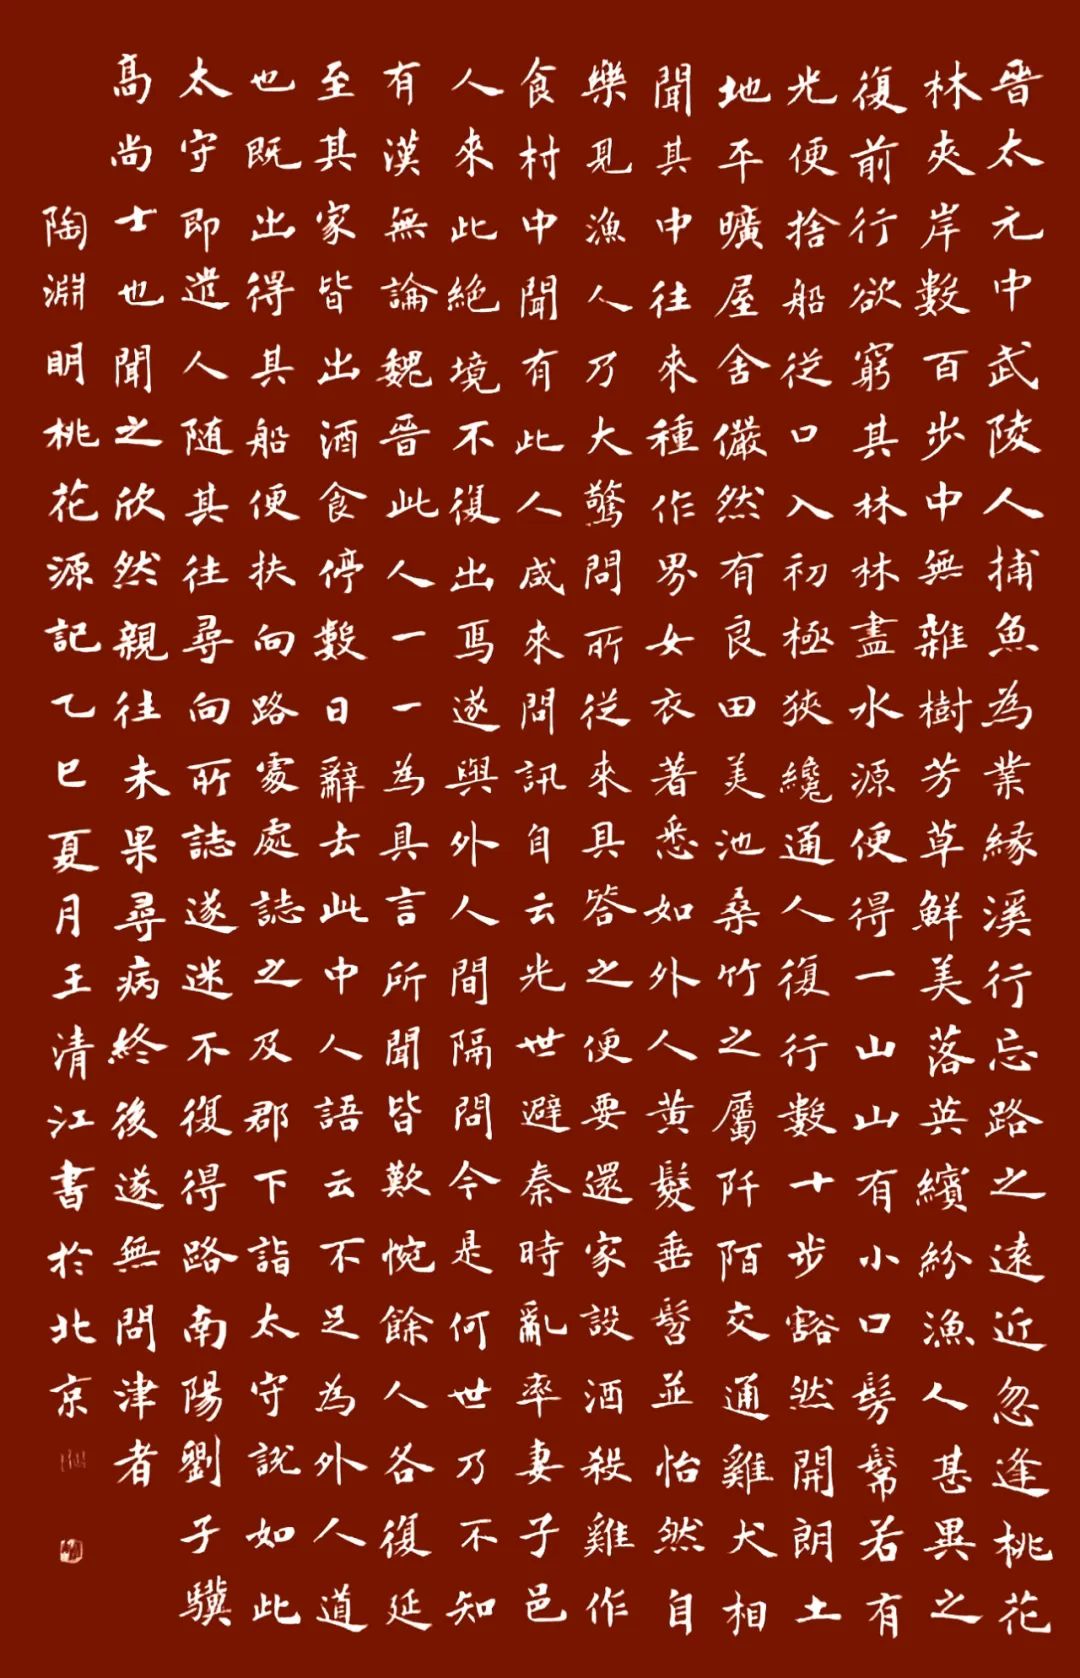 晉太元中武陵人捕魚為業緣溪行忘路之遠近忽逢桃花
林夾岸數百步中無雜樹芳草鮮美落英繽紛漁人甚異之
復前行欲窮其林林盡水源便得一山山有小口髣髴若有
光便捨船從口入初極狹纔通人復行數十步豁然開朗土
地平曠屋舍儼然有良田美池桑竹之屬阡陌交通雞犬相
聞其中往來種作男女衣著悉如外人黃髮垂髫並怡然自
樂見漁人乃大驚問所從來具答之便要還家設酒殺雞作
食村中聞有此人咸來問訊自云先世避秦時亂率妻子邑
人來此絕境不復出焉遂與外人間隔問今是何世乃不知
有漢無論魏晉此人一一為具言所聞皆歎惋餘人各復延
至其家皆出酒食停數日辭去此中人語云不足為外人道
也既出得其船便扶向路處處誌之及郡下詣太守說如此
太守即遣人隨其往尋向所誌遂迷不復得路南陽劉子驥
高尚士也聞之欣然親往未果尋病終後遂無問津者
陶淵明桃花源記乙巳夏月王清江書於北京